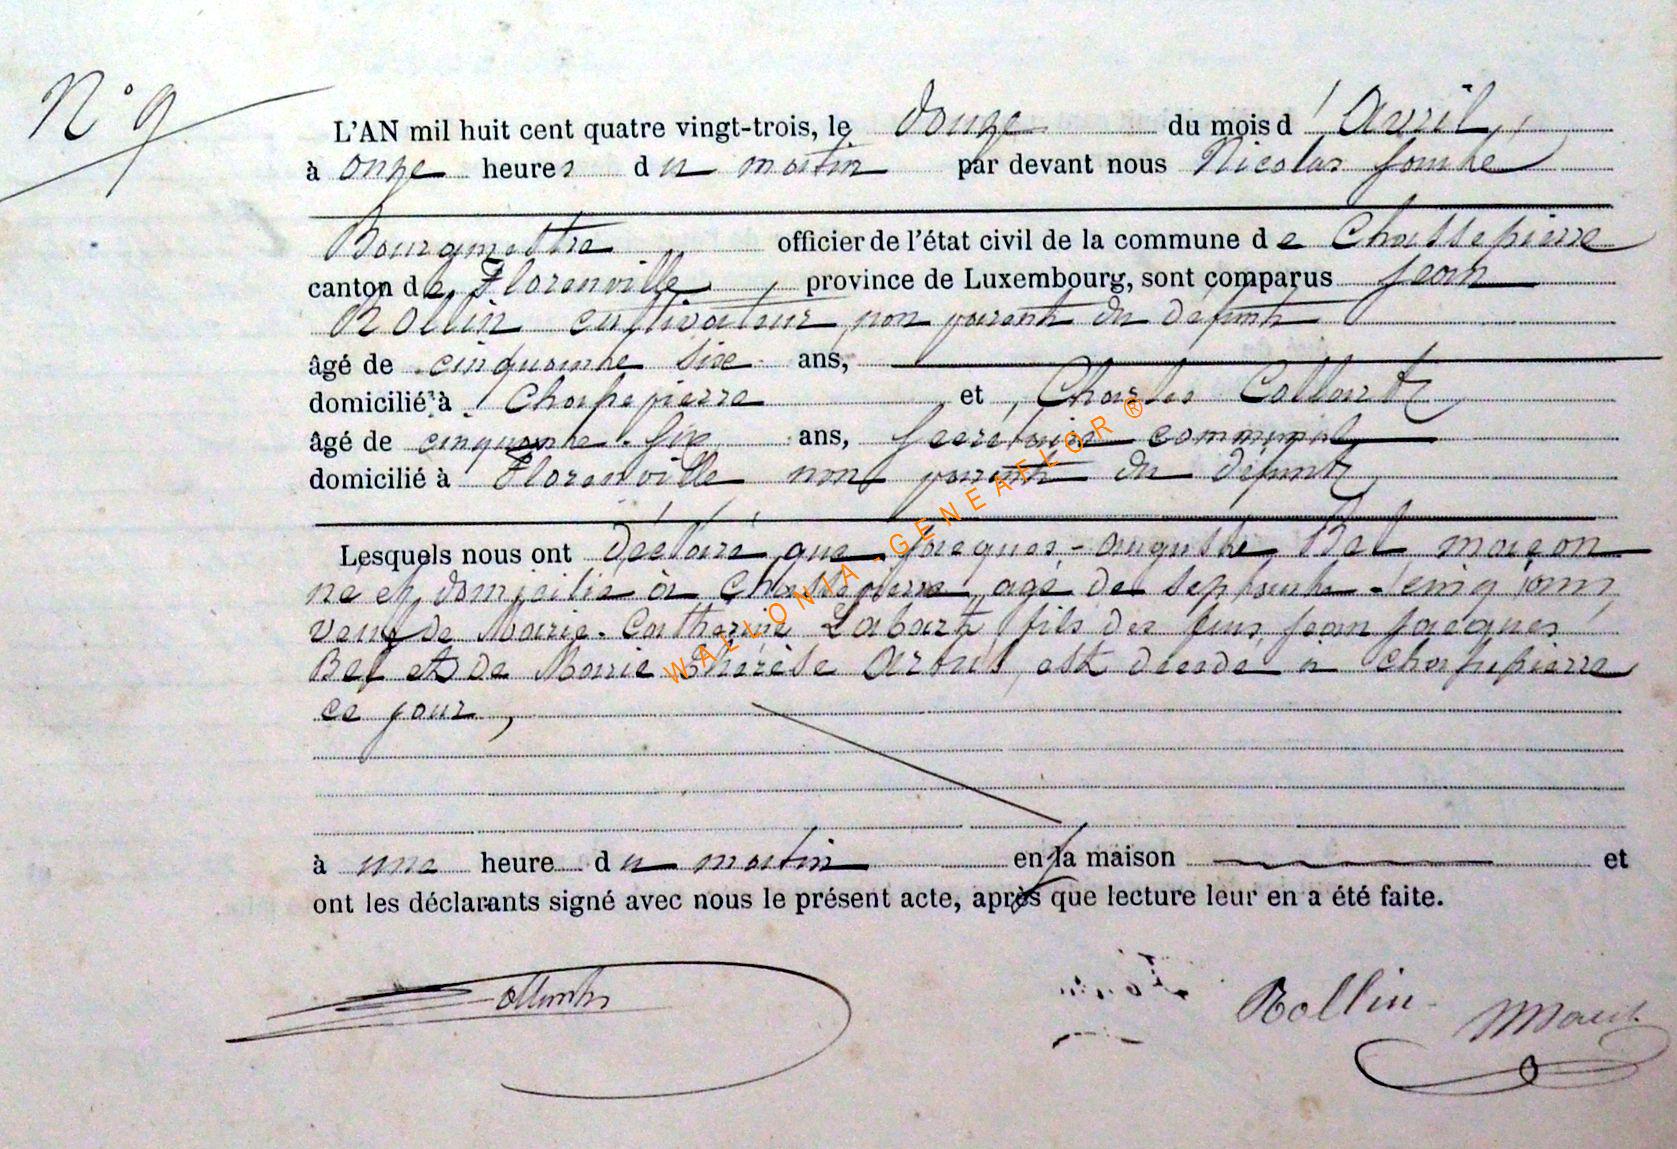 N° 9
L'AN mil huit cent quatre vingt-trois, le douze du mois d'Avril,
à onze heures du matin par devant nous Nicolas
Bourgmestre officier de l'état civil de la commune de Chassepierre
canton de Florenville, province de Luxembourg, sont comparus Jean
Rollin cultivateur non parent du défunt
âgé de cinquante six ans,
domicilié à Chassepierre et Charles
âgé de cinquante six ans, secrétaire communal
domicilié à Florenville non parent du défunt
Lesquels nous ont déclaré que Jacques-Auguste Bel maçon
né et domicilié à Chassepierre, agé de septante-cinq ans,
veuf de Marie-Catherine fils des feus Jean Jacques
Bel et de Marie Thérèse est décédé à Chassepierre
ce jour,
à une heure du matin en la maison et
ont les déclarants signé avec nous le présent acte, après que lecture leur en a été faite.
Rollin
WALLONIA-GENEAFLOR ®